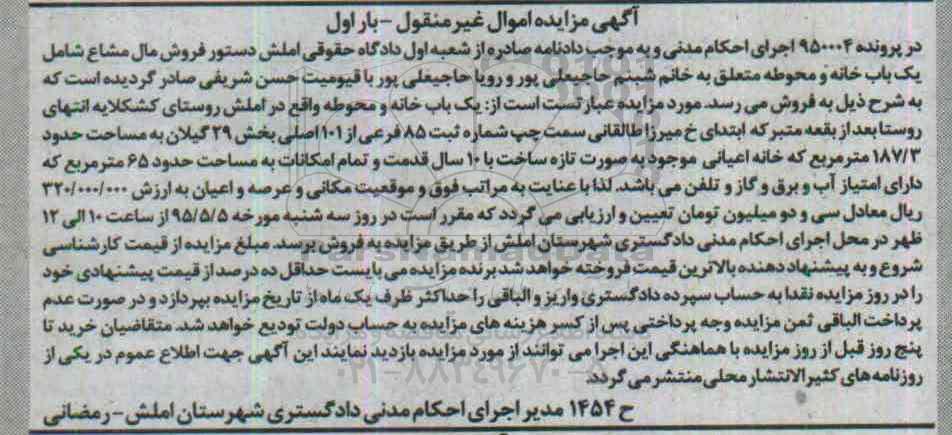 آگهی مزایده اموال غیر منقول - بار اول
در پرونده ۹۵۰۰۰۴ اجرای احکام مدنی و به موجب دادنامه صادره از شعبه اول دادگاه حقوقی املش دستور فروش مال مشاع شامل
یک باب خانه و محوطه متعلق به خانم شبنم حاجیعلی پور و رویا حاجیعلی پور با قیومیت حسن شریفی صادر گردیده است که
به شرح ذیل به فروش می رسد. مورد مزایده عبارتست است از: یک باب خانه و محوطه واقع در املش روستای کشکلایه انتهای
روستا بعد از بقعه متبرکه ابتدای خ میرزا طالقانی سمت چپ شماره ثبت ۸۵ فرعی از ۱۰۱ اصلی بخش ۲۹ گیلان به مساحت حدود
۱۸۷/۳ متر مربع که خانه اعیانی موجود به صورت تازه ساخت با ۱۰ سال قدمت و تمام امکانات به مساحت حدود ۶۵ متر مربع که
دارای امتیاز آب و برق و گاز و تلفن می باشد. لذا با عنایت به مراتب فوق و موقعیت مکانی و عرصه و اعیان به ارزش ۳۲۰/۰۰۰/۰۰۰
ریال معادل سی و دو میلیون تومان تعیین و ارزیابی می گردد که مقرر است در روز سه شنبه مورخه ۹۵/۵/۵ از ساعت ۱۰ الی ۱۲
ظهر در محل اجرای احکام مدنی دادگستری شهرستان املش از طریق مزایده به فروش برسد. مبلغ مزایده از قیمت کارشناسی
شروع و به پیشنهاد دهنده بالاترین قیمت فروخته خواهد شد برنده مزایده می بایست حداقل ده درصد از قیمت پیشنهادی خود
را در روز مزایده نقدا به حساب سپرده دادگستری واریز و الباقی را حداکثر ظرف یک ماه از تاریخ مزایده بپردازد و در صورت عدم
پرداخت الباقی ثمن مزایده وجه پرداختی پس از کسر هزینه های مزایده به حساب دولت تودیع خواهد شد. متقاضیان خرید تا
پنج روز قبل از روز مزایده با هماهنگی این اجرا می توانند از مورد مزایده بازدید نمایند این آگهی جهت اطلاع عموم در یکی از
روزنامه های کثیر الانتشار محلی منتشر می گردد.
ح ۱۴۵۴ مدیر اجرای احکام مدنی دادگستری شهرستان املش - رمضانی
ParsNamadData
۰۲۱-۸۸۳۴۹۶۷۰-۵